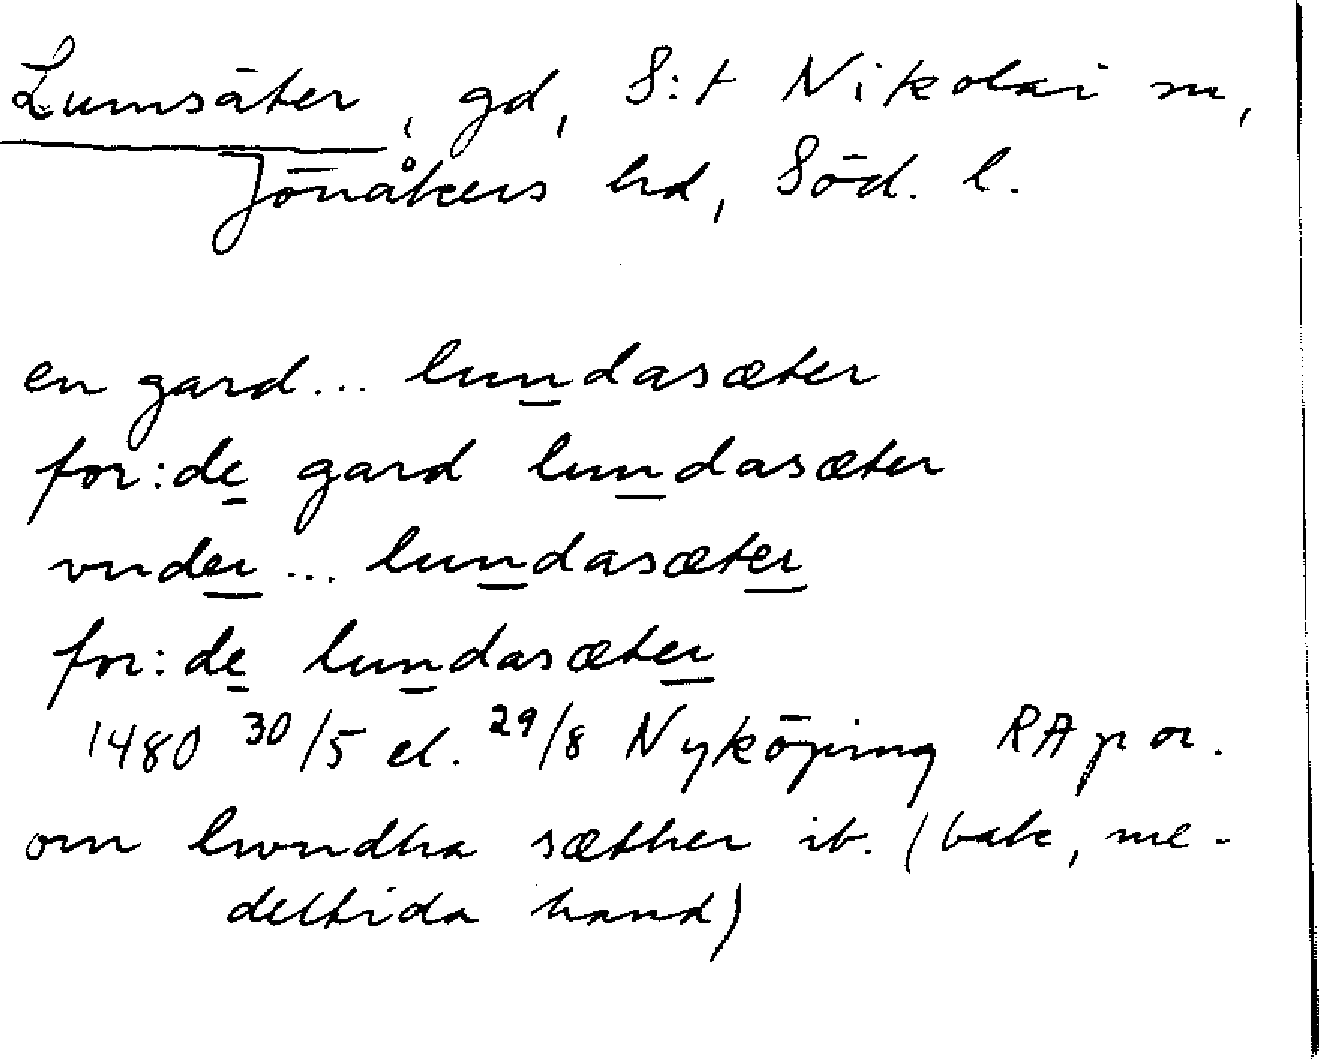 Lumsäter, gd, S:t Nikolai sn,
Jönåkers hd, Söd. l.
en gard... lundasæter
for:de gard lundasæter
vnder... lundasæter
for:de lundasæter
1480 30/5 el. 29/8 Nyköping RAp or.
om lwndha sæther ib. (bak, me-
deltida hand)